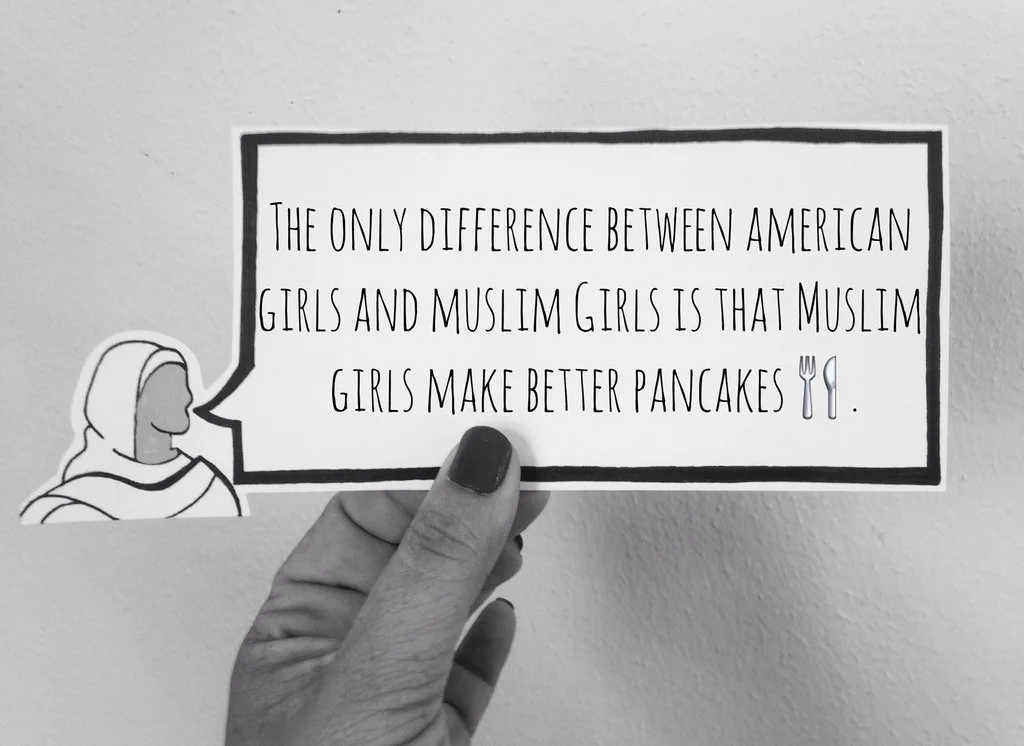 The only difference between american
girls and muslim Girls is that Muslim
girls make better pancakes 🍴.